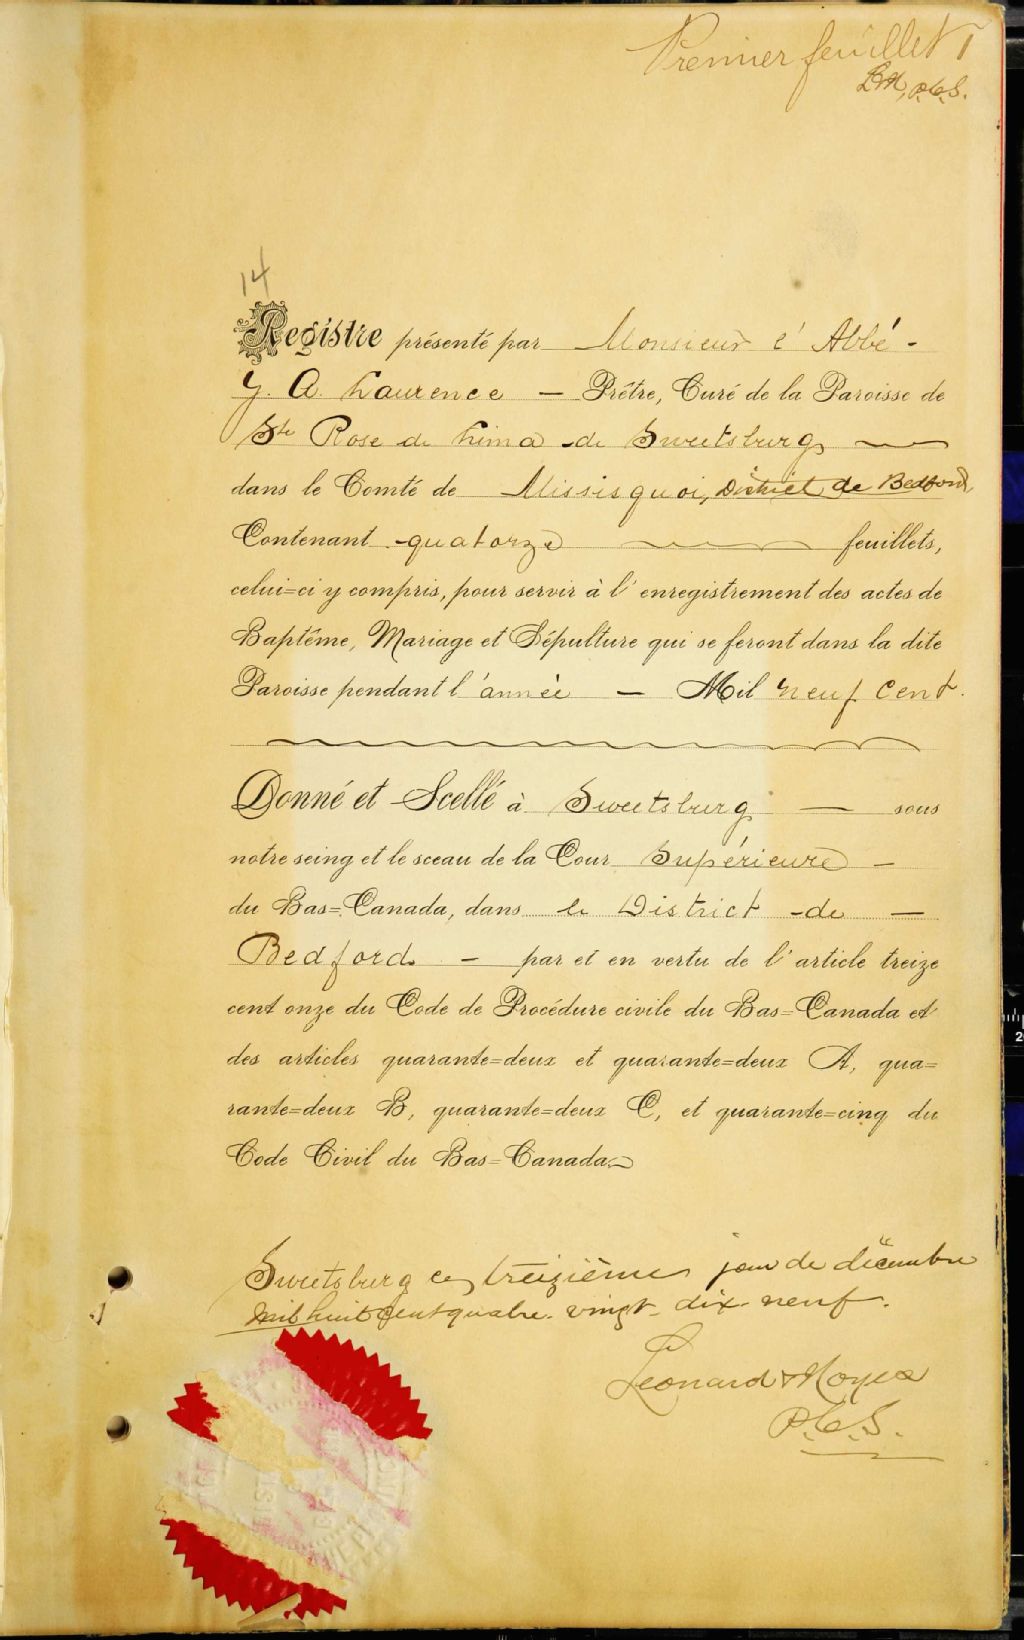 Premier feuillet
L&N, P.C.S.
14
Registre présenté par Monsieur l'Abbé -
J. A. Laurence — Prêtre, Curé de la Paroisse de
Ste Rose de Lima de Sweetsburg
dans le Comté de Missisquoi, District de Bedford,
Contenant quatorze feuillets,
celui=ci y compris, pour servir à l'enregistrement des actes de
Baptême, Mariage et Sépulture qui se feront dans la dite
Paroisse pendant l'année — Mil neuf cent.
Donné et Scellé à Sweetsburg — sous
notre seing et le sceau de la Cour Supérieure —
du Bas=Canada, dans le District de —
Bedford — par et en vertu de l'article treize
cent onze du Code de Procédure civile du Bas=Canada et
des articles quarante=deux et quarante=deux A, qua=
rante=deux B, quarante=deux C, et quarante=cinq du
Code Civil du Bas=Canada.
Sweetsburg ce treizième jour de décembre
mil huit cent quatre-vingt-dix-neuf.
Leonard & Noyes
P.C.S.